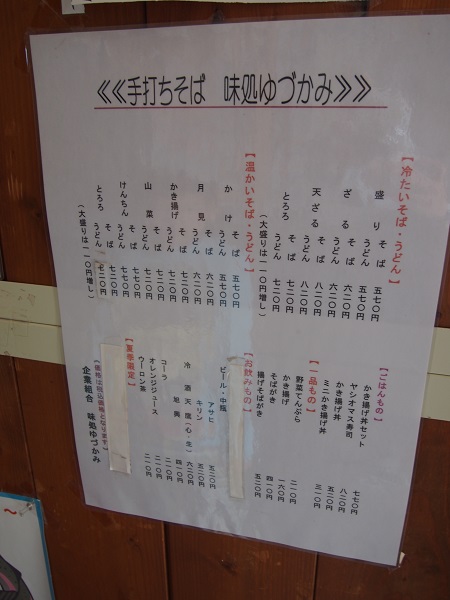 ≪≪手打ちそば　味処ゆづかみ≫≫
【冷たいそば・うどん】
盛り　そば　五七〇円
うどん　五七〇円
ざる　そば　六二〇円
うどん　六二〇円
天ざる　そば　八二〇円
うどん　八二〇円
とろろ　そば　七二〇円
うどん　七二〇円
（大盛りは二一〇円増し）
【温かいそば・うどん】
かけ　そば　五七〇円
うどん　五七〇円
月見　そば　六二〇円
うどん　六二〇円
かき揚げ　そば　七二〇円
うどん　七二〇円
山菜　そば　七七〇円
うどん　七七〇円
けんちん　そば　七七〇円
うどん　七七〇円
とろろ　そば　七二〇円
うどん　七二〇円
（大盛りは二一〇円増し）
【ごはんもの】
かき揚げ丼セット　七七〇円
ヤシオマス寿司　八二〇円
かき揚げ丼　五二〇円
ミニかき揚げ丼　三一〇円
【一品もの】
野菜てんぷら　二一〇円
かき揚げ　一六〇円
そばがき　四一〇円
揚げそばがき　五二〇円
【お飲みもの】
ビール・中瓶
アサヒ　五二〇円
キリン　五二〇円
冷酒　天鷹（心・生）　六二〇円
コーラ　二一〇円
オレンジジュース　二一〇円
ウーロン茶　二一〇円
【夏季限定】
【価格は税込価格となります】
企業組合　味処ゆづかみ